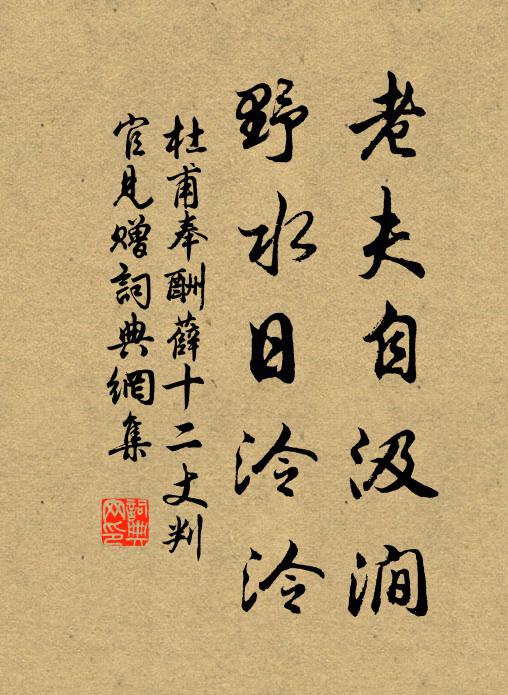 老夫自汲澗
野水日泠泠
杜甫奉酬薛十二丈判
官見贈詞典網集
詞典网印